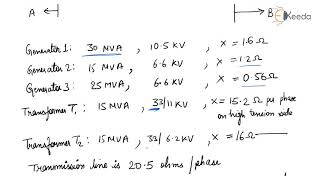 A B Ekeeda
Generator 1: 30 MVA, 10.5 KV, X = 1.6 Ω
Generator 2: 15 MVA, 6.6 KV, X = 1.2 Ω
Generator 3: 25 MVA, 6.6 KV, X = 0.56 Ω
Transformer T₁: 15 MVA, 33/11 KV, X = 15.2 Ω per phase
on high tension side
Transformer T₂: 15 MVA, 33/6.2 KV, X = 16 Ω
Transmission line is 20.5 ohms/phase